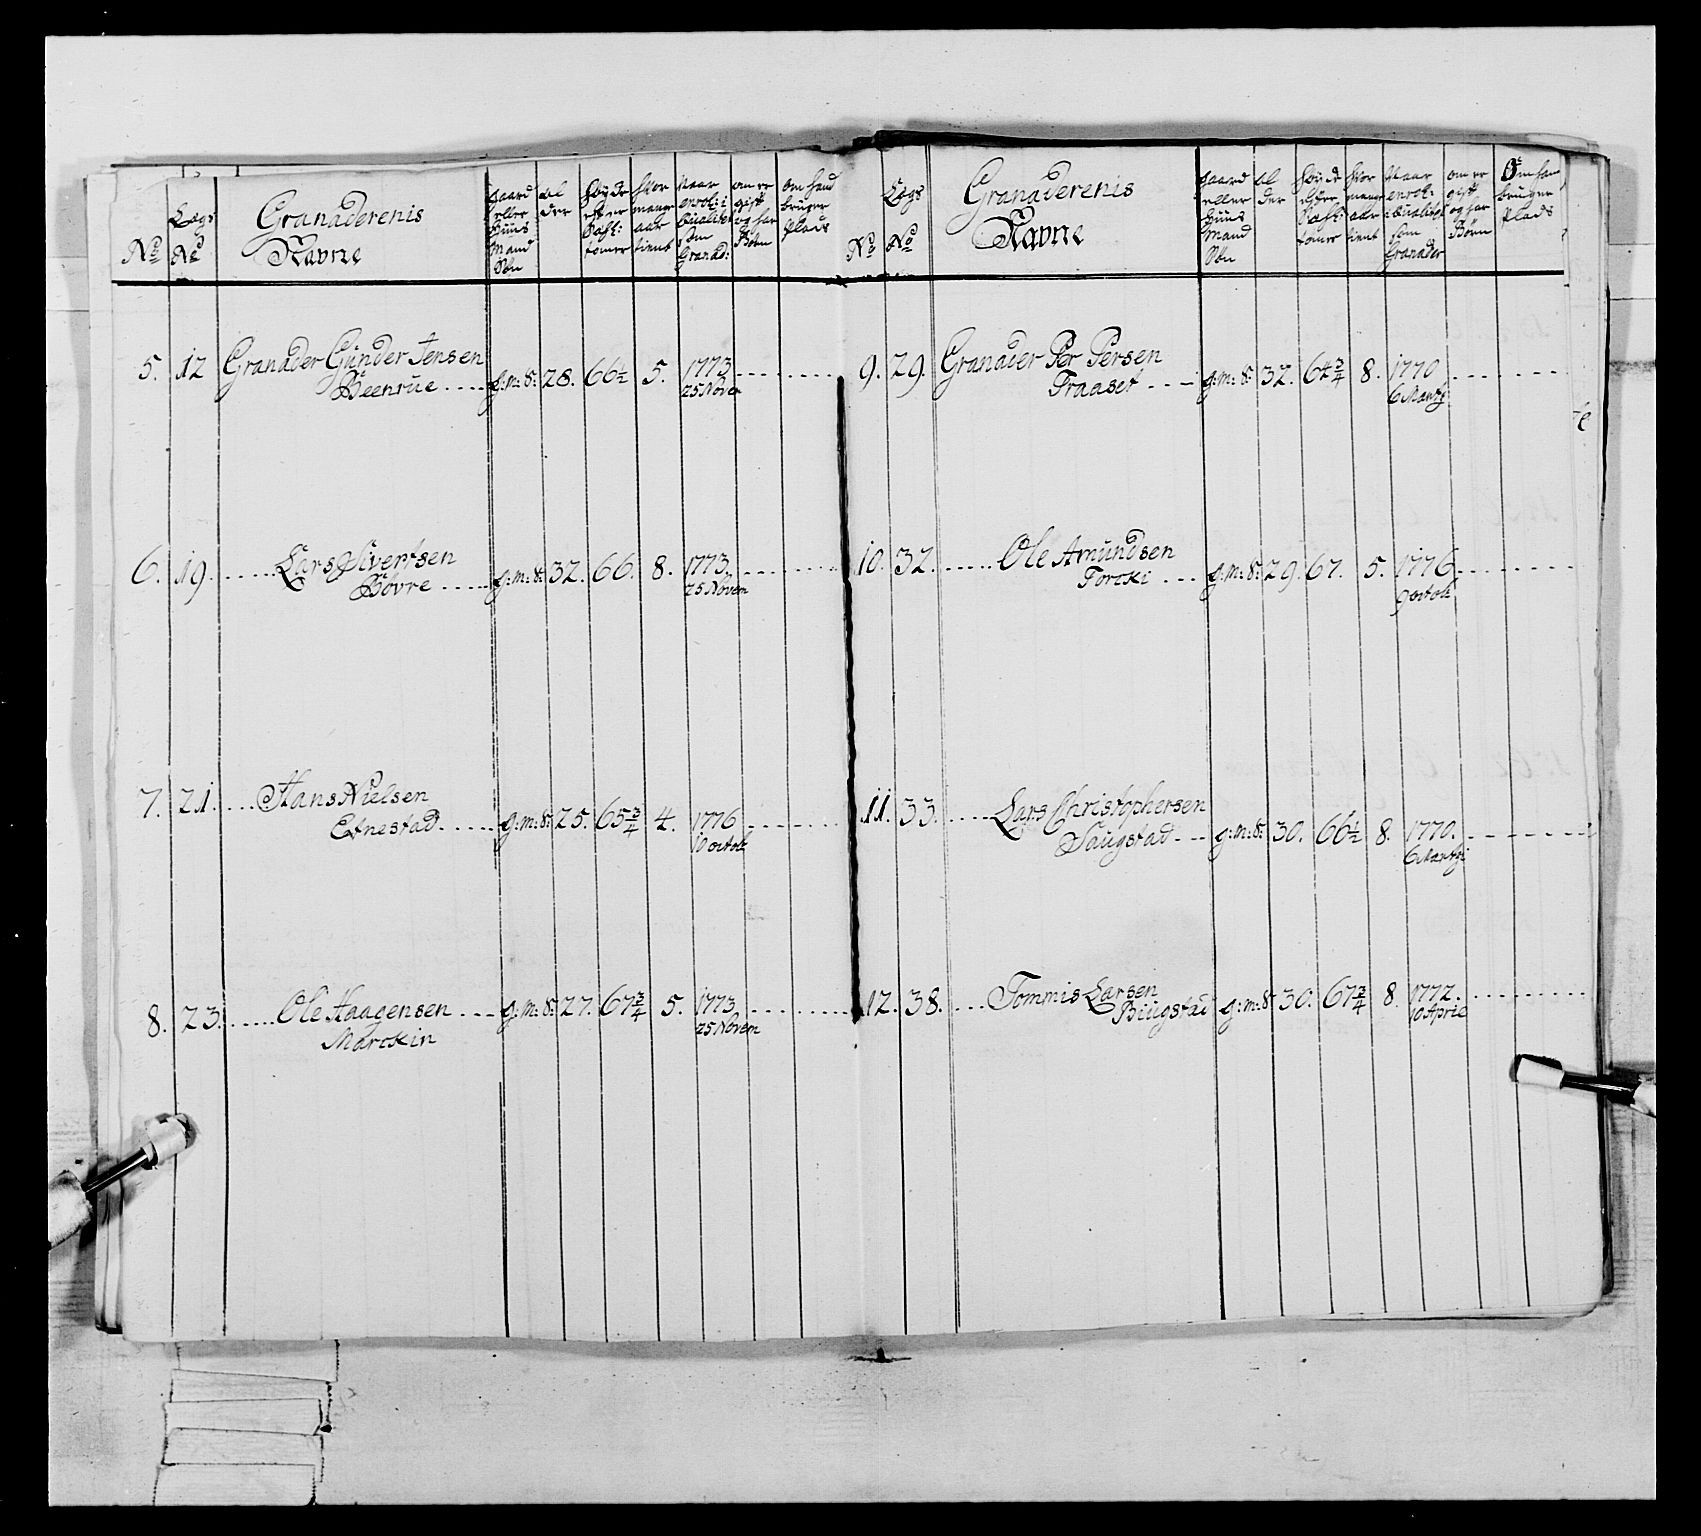 No
Lægs
No
Granaderenis
Navne
gaard
eller
Huus
Mand
Søn
al
der
høyde
efter
Saft:
tomer
hvor
mange
aar
tient
Naar
enrol: i
Qualitet
som
Granad:
om er
gift
og har
Børn
om hand
bruger
Plads
5. 12 Granader Gunder Jensen
Beenrue .... g:m:S: 28. 66½ 5. 1773
25 Novem
6. 19. ...... Lars Sivertsen
Bøvre ..... g:m:S: 32. 66. 8. 1773.
25 Novem
7. 21. .... Hans Nielsen
Etnestad ...... g:m:S: 25. 65¾ 4. 1776
10 octob
8. 23. ...... Ole Haagensen .... g:m:S: 27. 67¾ 5. 1773
Marckin 25 Novem
No
Lægs
No
Granaderenis
Navne
gaard
eller
Huus
Mand
Søn
al
der
høyde
efter
Saft:
tomer
hvor
mange
aar
tient
Naar
enrol:
i Qualitet
som
Granader
om er
gift
og har
Børn
Om han
bruger
Plads
9. 29. Granader Per Persen
Fraaset .... g:m:S: 32. 64¾ 8. 1770
6 Martj
10. 32. ...... Ole Amundsen
Torcki ... g:m:S: 29. 67. 5. 1776
9 octob
11. 33. ..... Lars Christophersen
Saugstad ... g:m:S: 30. 66½ 8. 1770.
6 Martzi
12. 38. .... Tommis Larsen
Biugstad g:m:S: 30. 67¾ 8. 1772.
10 Apriel